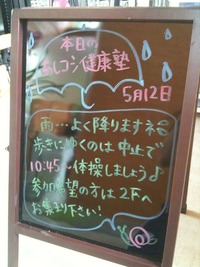 本日の
あしコシ健康塾
5月12日
雨…よく降りますネ
歩きにゆくのは中止で
10:45～体操しましょう♪
参加希望の方は2Fへ
お集まり下さい!